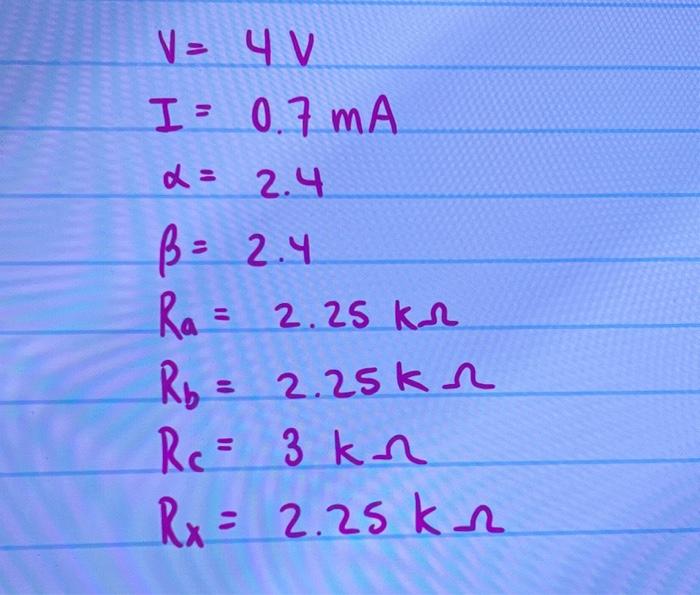 V= 4 V
I= 0.7 mA
α= 2.4
β= 2.4
Ra= 2.25 kΩ
Rb= 2.25 kΩ
Rc= 3 kΩ
Rx= 2.25 kΩ